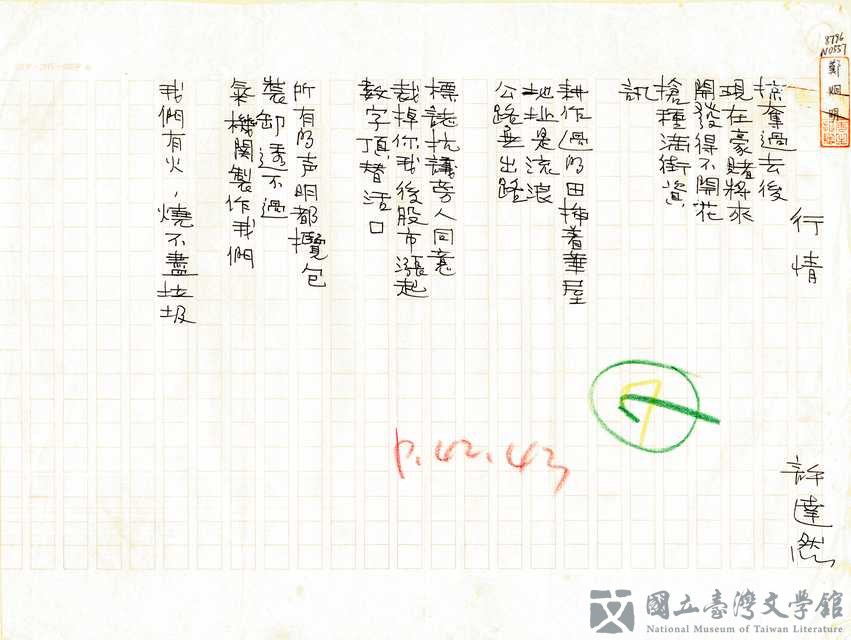 8796
N0557
鄭烱明
行情
許達然
掠奪過去後
現在豪賭將來
開發得不開花
搶種滿街資
訊
耕作過的田擁著華屋
地址是流浪
公路無出路
標誌抗議旁人同意
裁掉你我後股市漲起
數字頂替活口
所有的声明都攬包
裝卸透不過
氣機関製作我們
我們有火，燒不盡垃圾
7
P.42.43
國立臺灣文學館
National Museum of Taiwan Literature